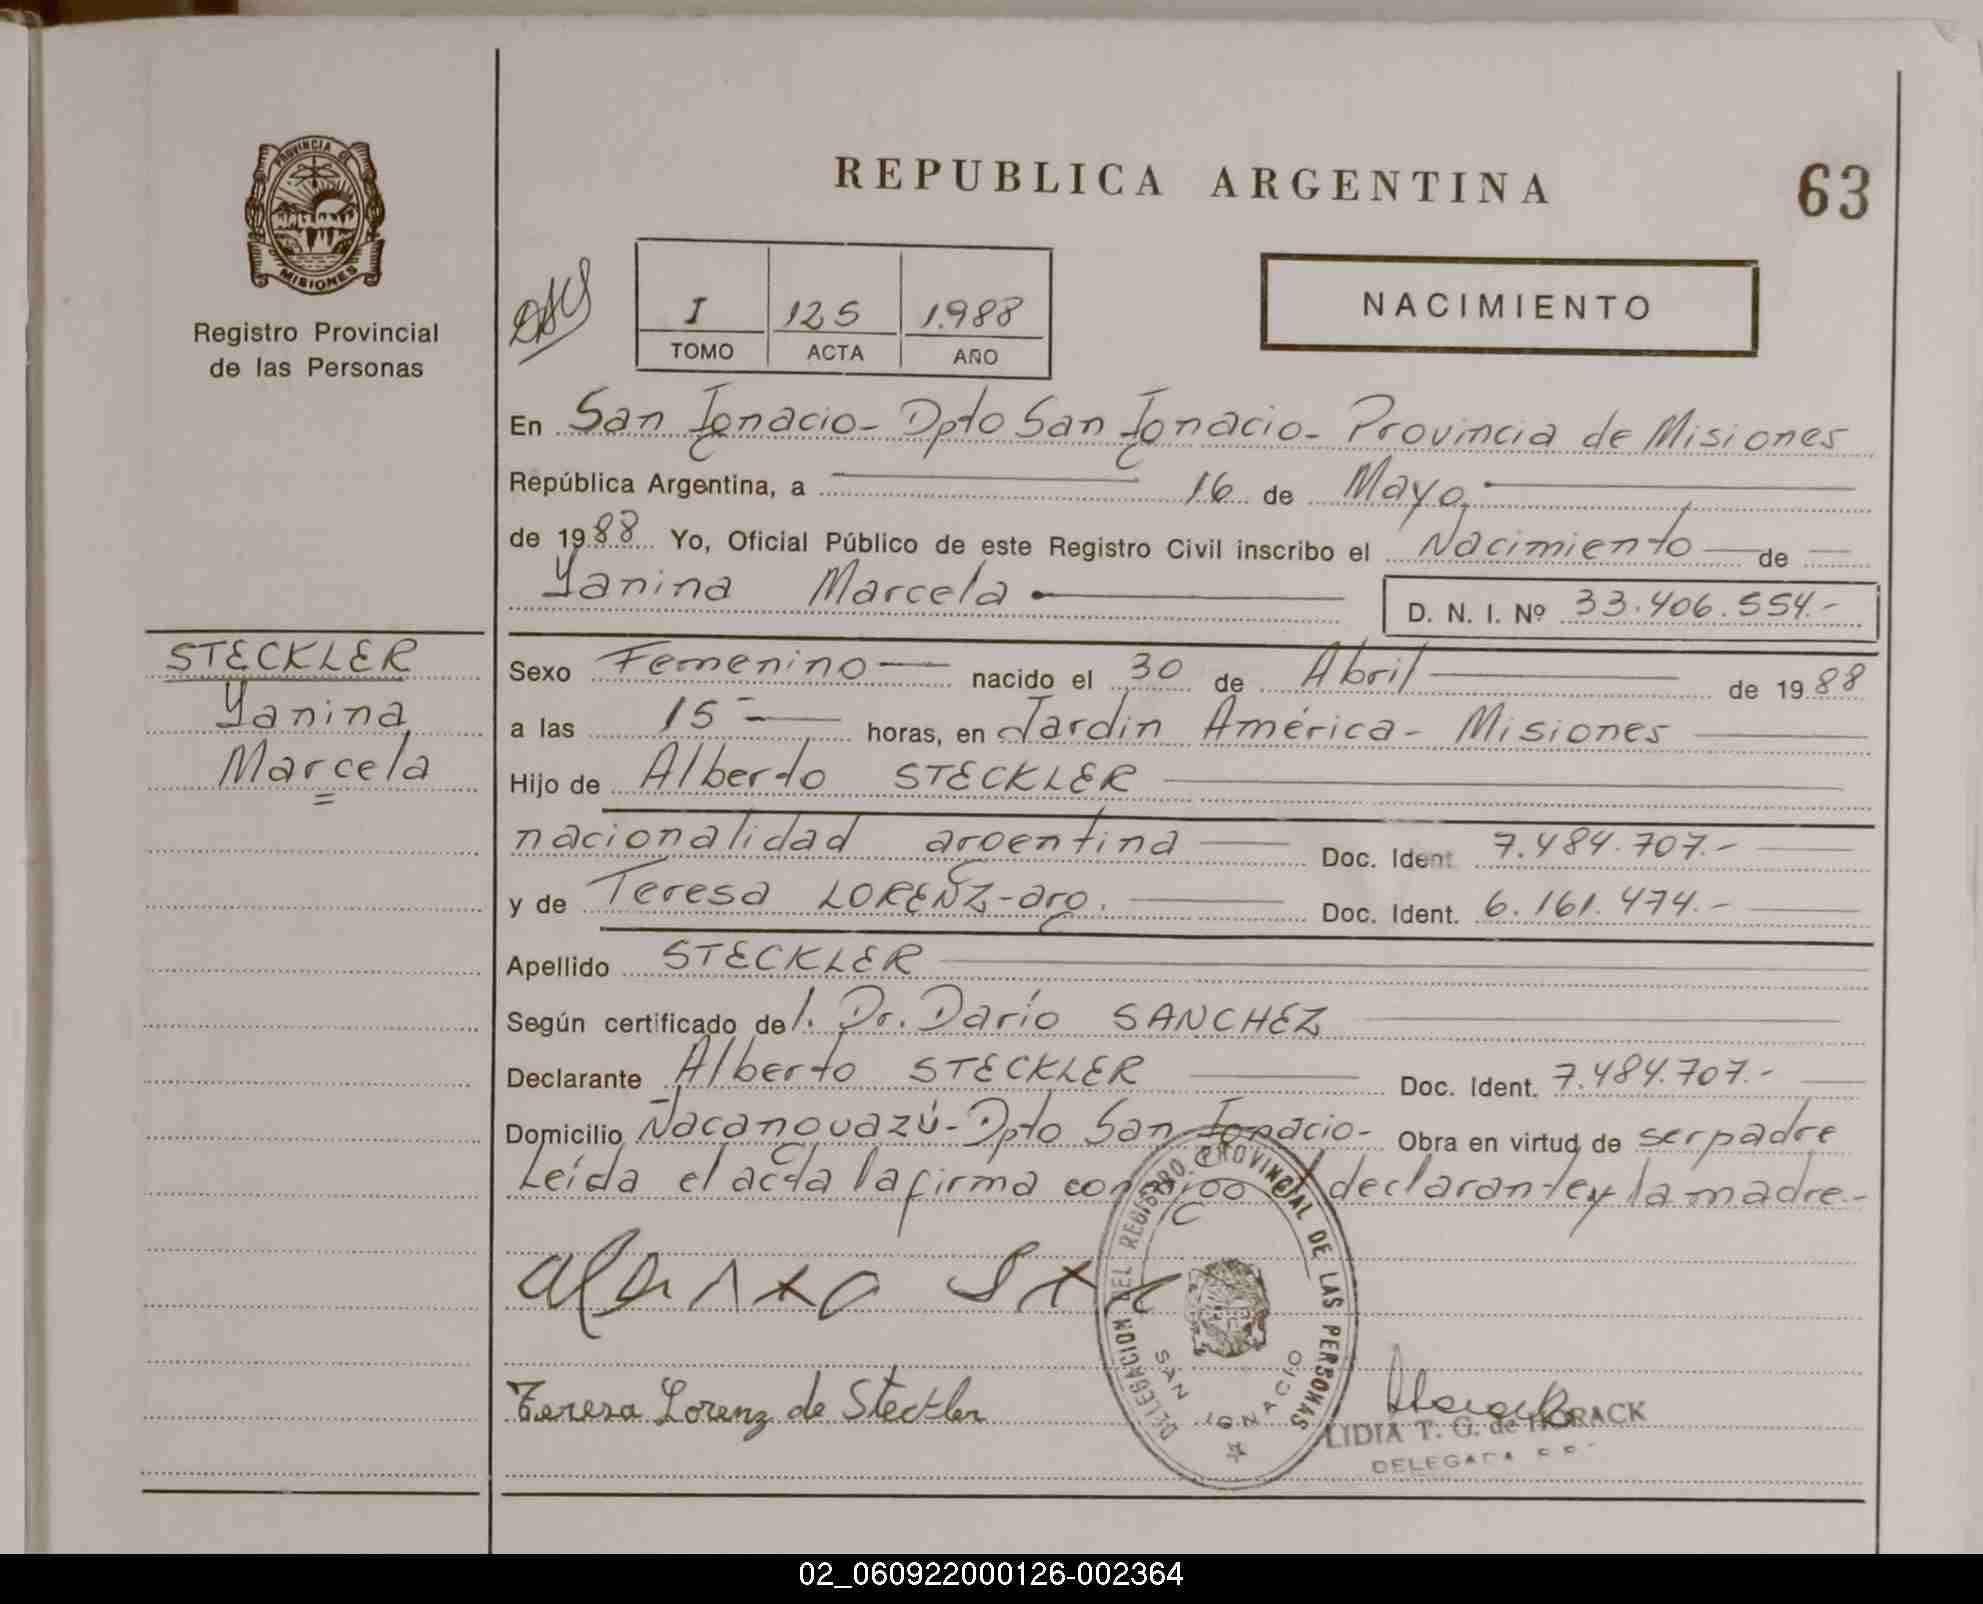 PROVINCIA DE
MISIONES
Registro Provincial
de las Personas
REPUBLICA ARGENTINA
63
I 125 1.988
TOMO ACTA AÑO
NACIMIENTO
En San Ignacio - Dpto San Ignacio - Provincia de Misiones
República Argentina, a 16 de Mayo
de 1988 Yo, Oficial Público de este Registro Civil inscribo el Nacimiento de
Yanina Marcela
D. N. I. Nº 33.406.554.-
STECKLER
Yanina
Marcela
Sexo Femenino nacido el 30 de Abril de 1988
a las 15 horas, en Jardin América - Misiones
Hijo de Alberto STECKLER
nacionalidad argentina Doc. Ident. 7.484.707.-
y de Teresa LORENZ - arg. Doc. Ident. 6.161.474.-
Apellido STECKLER
Según certificado del. Dr. Darío SANCHEZ
Declarante Alberto STECKLER Doc. Ident. 7.484.707.-
Domicilio Ñacanguazú - Dpto San Ignacio - Obra en virtud de ser padre
Leída el acta la firma conmigo el declarante y la madre.-
Teresa Lorenz de Steckler
DELEGACION DEL REGISTRO PROVINCIAL DE LAS PERSONAS
SAN IGNACIO
LIDIA T. G. de HORACK
DELEGADA
02_060922000126-002364